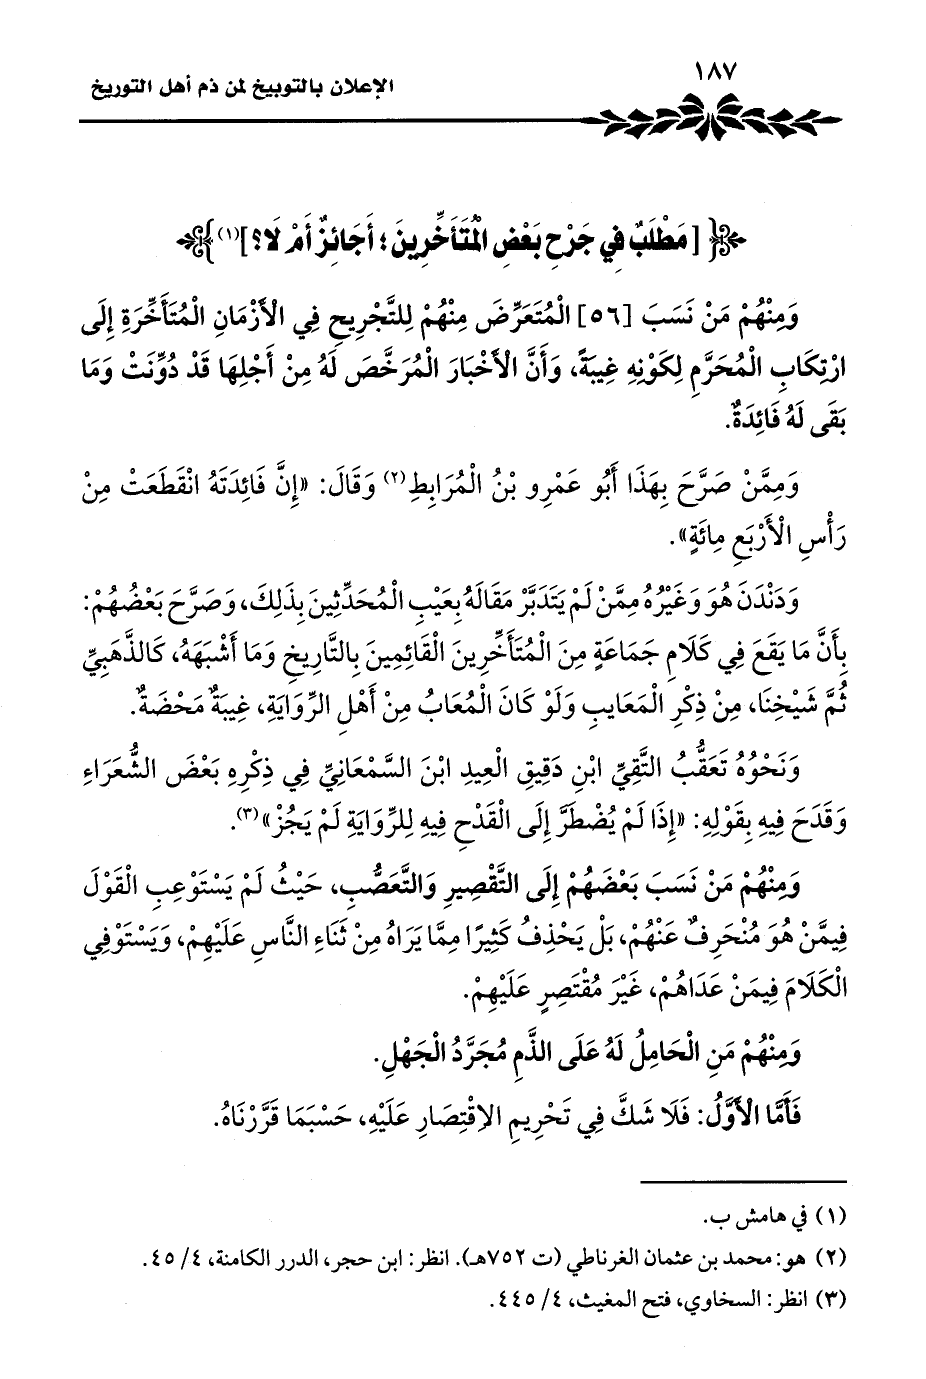 ١٨٧
الإعلان بالتوبيخ لمن ذم أهل التوريخ
[مَطْلَبٌ فِي جَرْحِ بَعْضِ الْمُتَأَخِّرِينَ؛ أَجَائِزٌ أَمْ لَا؟](١)
وَمِنْهُمْ مَنْ نَسَبَ [٥٦] الْمُتَعَرِّضَ مِنْهُمْ لِلتَّجْرِيحِ فِي الْأَزْمَانِ الْمُتَأَخِّرَةِ إِلَى
ارْتِكَابِ الْمُحَرَّمِ لِكَوْنِهِ غِيبَةً، وَأَنَّ الْأَخْبَارَ الْمُرَخَّصَ لَهُ مِنْ أَجْلِهَا قَدْ دُوِّنَتْ وَمَا
بَقَى لَهُ فَائِدَةٌ.
وَمِمَّنْ صَرَّحَ بِهَذَا أَبُو عَمْرِو بْنُ الْمُرَابِطِ(٢) وَقَالَ: «إِنَّ فَائِدَتَهُ انْقَطَعَتْ مِنْ
رَأْسِ الْأَرْبَعِ مِائَةٍ».
وَدَنْدَنَ هُوَ وَغَيْرُهُ مِمَّنْ لَمْ يَتَدَبَّرْ مَقَالَهُ بِعَيْبِ الْمُحَدِّثِينَ بِذَلِكَ، وَصَرَّحَ بَعْضُهُمْ:
بِأَنَّ مَا يَقَعَ فِي كَلَامِ جَمَاعَةٍ مِنَ الْمُتَأَخِّرِينَ الْقَائِمِينَ بِالتَّارِيخِ وَمَا أَشْبَهَهُ، كَالذَّهَبِيِّ
ثُمَّ شَيْخِنَا، مِنْ ذِكْرِ الْمَعَايِبِ وَلَوْ كَانَ الْمُعَابُ مِنْ أَهْلِ الرِّوَايَةِ، غِيبَةٌ مَحْضَةٌ.
وَنَحْوُهُ تَعَقُّبُ التَّقِيِّ ابْنِ دَقِيقِ الْعِيدِ ابْنَ السَّمْعَانِيِّ فِي ذِكْرِهِ بَعْضَ الشُّعَرَاءِ
وَقَدَحَ فِيهِ بِقَوْلِهِ: «إِذَا لَمْ يُضْطَرَّ إِلَى الْقَدْحِ فِيهِ لِلرِّوَايَةِ لَمْ يَجُزْ»(٣).
وَمِنْهُمْ مَنْ نَسَبَ بَعْضَهُمْ إِلَى التَّقْصِيرِ وَالتَّعَصُّبِ، حَيْثُ لَمْ يَسْتَوْعِبِ الْقَوْلَ
فِيمَّنْ هُوَ مُنْحَرِفٌ عَنْهُمْ، بَلْ يَحْذِفُ كَثِيرًا مِمَّا يَرَاهُ مِنْ ثَنَاءِ النَّاسِ عَلَيْهِمْ، وَيَسْتَوْفِي
الْكَلَامَ فِيمَنْ عَدَاهُمْ، غَيْرَ مُقْتَصِرٍ عَلَيْهِمْ.
وَمِنْهُمْ مَنِ الْحَامِلُ لَهُ عَلَى الذَّمِ مُجَرَّدُ الْجَهْلِ.
فَأَمَّا الْأَوَّلُ: فَلَا شَكَّ فِي تَحْرِيمِ الِاقْتِصَارِ عَلَيْهِ، حَسْبَمَا قَرَّرْنَاهُ.
(١) في هامش ب.
(٢) هو: محمد بن عثمان الغرناطي (ت ٧٥٢هـ). انظر: ابن حجر، الدرر الكامنة، ٤/ ٤٥.
(٣) انظر: السخاوي، فتح المغيث، ٤/ ٤٤٥.